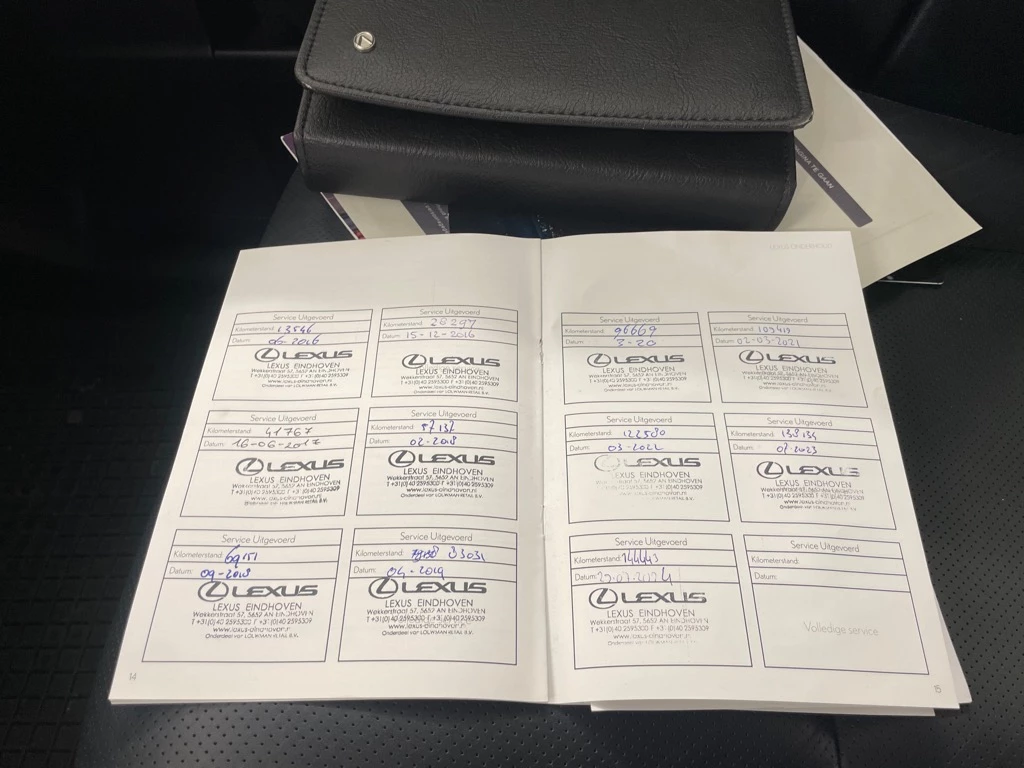 PAGINA TE GAAN
LEXUS ONDERHOUD
Service Uitgevoerd
Kilometerstand: 13546
Datum: 06-2016
LEXUS
LEXUS EINDHOVEN
Wekkerstraat 57, 5652 AN EINDHOVEN
T +31(0)40 2595300 F +31(0)40 2595309
www.lexus-eindhoven.nl
Onderdeel van LOUWMAN RETAIL B.V.
Service Uitgevoerd
Kilometerstand: 28297
Datum: 15-12-2016
LEXUS
LEXUS EINDHOVEN
Wekkerstraat 57, 5652 AN EINDHOVEN
T +31(0)40 2595300 F +31(0)40 2595309
www.lexus-eindhoven.nl
Onderdeel van LOUWMAN RETAIL B.V.
Service Uitgevoerd
Kilometerstand: 41767
Datum: 16-06-2017
LEXUS
LEXUS EINDHOVEN
Wekkerstraat 57, 5652 AN EINDHOVEN
T +31(0)40 2595300 F +31(0)40 2595309
www.lexus-eindhoven.nl
Onderdeel van LOUWMAN RETAIL B.V.
Service Uitgevoerd
Kilometerstand: 57137
Datum: 02-2018
LEXUS
LEXUS EINDHOVEN
Wekkerstraat 57, 5652 AN EINDHOVEN
T +31(0)40 2595300 F +31(0)40 2595309
www.lexus-eindhoven.nl
Onderdeel van LOUWMAN RETAIL B.V.
Service Uitgevoerd
Kilometerstand: 69151
Datum: 09-2018
LEXUS
LEXUS EINDHOVEN
Wekkerstraat 57, 5652 AN EINDHOVEN
T +31(0)40 2595300 F +31(0)40 2595309
www.lexus-eindhoven.nl
Onderdeel van LOUWMAN RETAIL B.V.
Service Uitgevoerd
Kilometerstand: 83031
Datum: 04-2019
LEXUS
LEXUS EINDHOVEN
Wekkerstraat 57, 5652 AN EINDHOVEN
T +31(0)40 2595300 F +31(0)40 2595309
www.lexus-eindhoven.nl
Onderdeel van LOUWMAN RETAIL B.V.
14
Service Uitgevoerd
Kilometerstand: 96669
Datum: 3-20
LEXUS
LEXUS EINDHOVEN
Wekkerstraat 57, 5652 AN EINDHOVEN
T +31(0)40 2595300 F +31(0)40 2595309
www.lexus-eindhoven.nl
Onderdeel van LOUWMAN RETAIL B.V.
Service Uitgevoerd
Kilometerstand: 109419
Datum: 02-03-2021
LEXUS
LEXUS EINDHOVEN
Wekkerstraat 57, 5652 AN EINDHOVEN
T +31(0)40 2595300 F +31(0)40 2595309
www.lexus-eindhoven.nl
Service Uitgevoerd
Kilometerstand: 122580
Datum: 03-2022
LEXUS
LEXUS EINDHOVEN
Service Uitgevoerd
Kilometerstand: 133134
Datum: 07-2023
LEXUS
LEXUS EINDHOVEN
Wekkerstraat 57, 5652 AN EINDHOVEN
T +31(0)40 2595300 F +31(0)40 2595309
www.lexus-eindhoven.nl
Service Uitgevoerd
Kilometerstand: 144443
Datum: 2024
LEXUS
LEXUS EINDHOVEN
Wekkerstraat 57, 5652 AN EINDHOVEN
T +31(0)40 2595300 F +31(0)40 2595309
www.lexus-eindhoven.nl
Onderdeel van LOUWMAN RETAIL B.V.
Service Uitgevoerd
Kilometerstand:
Datum:
Volledige service
15